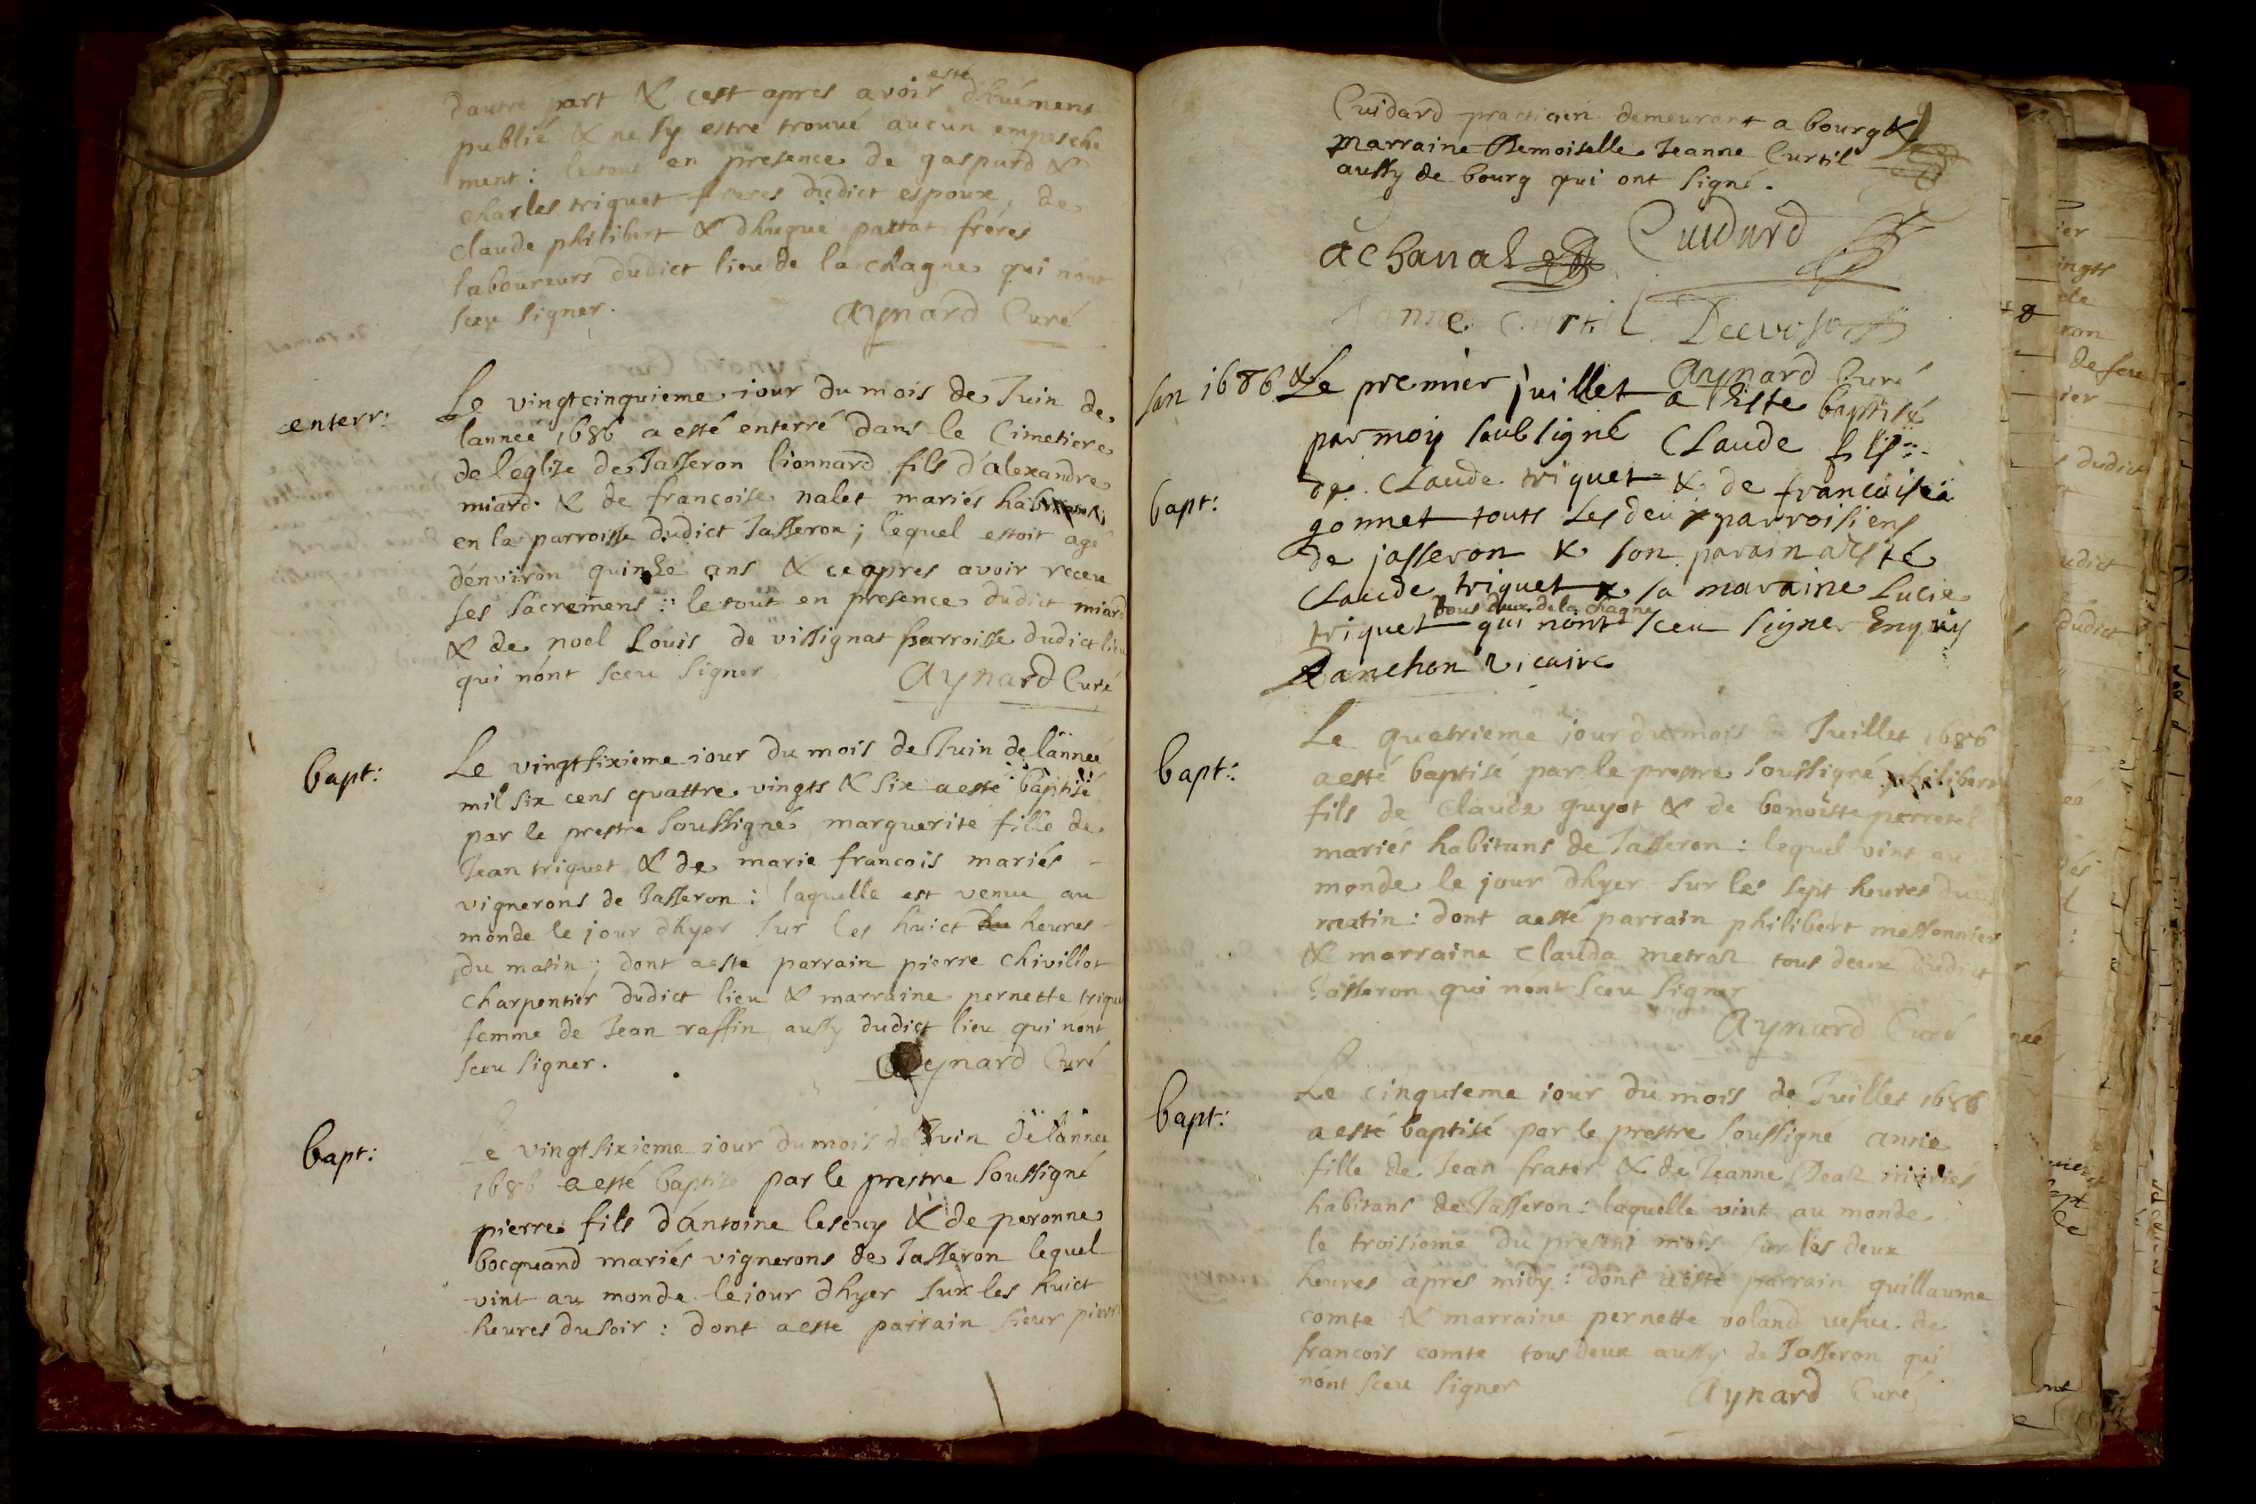 dautre part & cest apres avoir esté dhuëment
publié & ne sy estre trouvé aucun empesche
ment: le tout en presence de gaspard &
charles triquet freres dudict espoux, de
claude philibert & dhugue pattat fréres
laboureurs dudict lieu de la chagne qui n'ont
sceu signer. Aynard Curé
enterr:
Le vingtcinquieme iour du mois de Juin de
lannee 1686 a esté enterré dans le Cimetiere
de l'églize de Jasseron lionnard fils d'alexandre
miard & de francoise nalet mariés
en la parroisse dudict Jasseron; lequel estoit agé
d'environ quinze ans & ce apres avoir receu
ses sacremens: le tout en presence dudict miard
& de noel Louis de vissignat parroisse dudict lieu
qui nónt sceu signer Aynard Curé
bapt:
Le vingtsixieme iour du mois de Juin de lannee
mil six cens quattre vingts & six a esté baptisé
par le prestre soussigné marguerite fille de
Jean triquet & de marie francois mariés
vignerons de Jasseron; laquelle est venue au
monde le jour dhyer sur les huict heures
du matin; dont a esté parrain pierre chivillot
charpentier dudict lieu & marraine pernette trique
femme de Jean raffin aussy dudict lieu qui nónt
sceu signer. Aynard Curé
bapt:
Le vingtsixieme iour du mois de Juin de lannee
1686 a esté baptisé par le prestre soussigné
pierre fils d'antoine lescuy & de peronne
bocquand mariés vignerons de Jasseron lequel
vint au monde le iour dhyer sur les huict
heures du soir: dont a esté parrain sieur pierre
Cuidard practicien demeurant a bourg &
marraine Demoiselle Jeanne Curtil
aussy de bourg qui ont signé.
Cuidard
Jeanne Curtil
Aynard Curé
lan 1686 & Le premier juillet a Esté baptisé
par moy soubsigné Claude fils
bapt:
de Claude triquet & de francoise
gonnet touts les deux parroisiens
de jasseron & son parain a esté
Claude triquet & sa maraine Lucie
tous deux de la chagne
triquet qui nont sceu signer
vicaire
bapt:
Le quatrieme jour du mois de Juillet 1686
a esté baptisé par le prestre soussigné philibert
fils de claude guyot & de benoiste perretel
mariés habitans de Jasseron: lequel vint au
monde le jour dhyer sur les sept heures du
matin: dont a esté parrain philibert messonnier
& marraine Clauda metraz tous deux dudict
Jasseron qui nónt sceu signer
Aynard Curé
bapt:
Le cinquieme iour du mois de Juillet 1686
a esté baptisé par le prestre soussigne anne
fille de Jean frater & de Jeanne mariés
habitans de Jasseron: laquelle vint au monde
le troisieme du present mois sur les deux
heures apres midy: dont a esté parrain guillaume
comte & marraine pernette voland vefve de
francois comte tous deux aussy de Jasseron qui
nónt sceu signer Aynard Curé